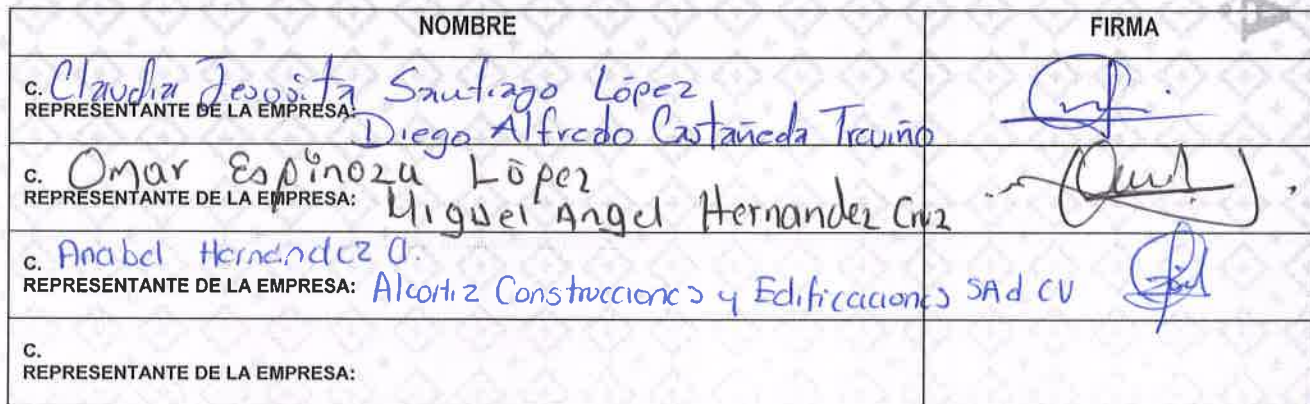 NOMBRE FIRMA
C. Claudia Jesusita Santiago López
REPRESENTANTE DE LA EMPRESA:
Diego Alfredo Castañeda Treviño
C. Omar Espinoza López
REPRESENTANTE DE LA EMPRESA: Miguel Angel Hernandez Cruz
C. Anabel Hernández
REPRESENTANTE DE LA EMPRESA: Alcortiz Construcciones y Edificaciones SA d CV
C.
REPRESENTANTE DE LA EMPRESA: